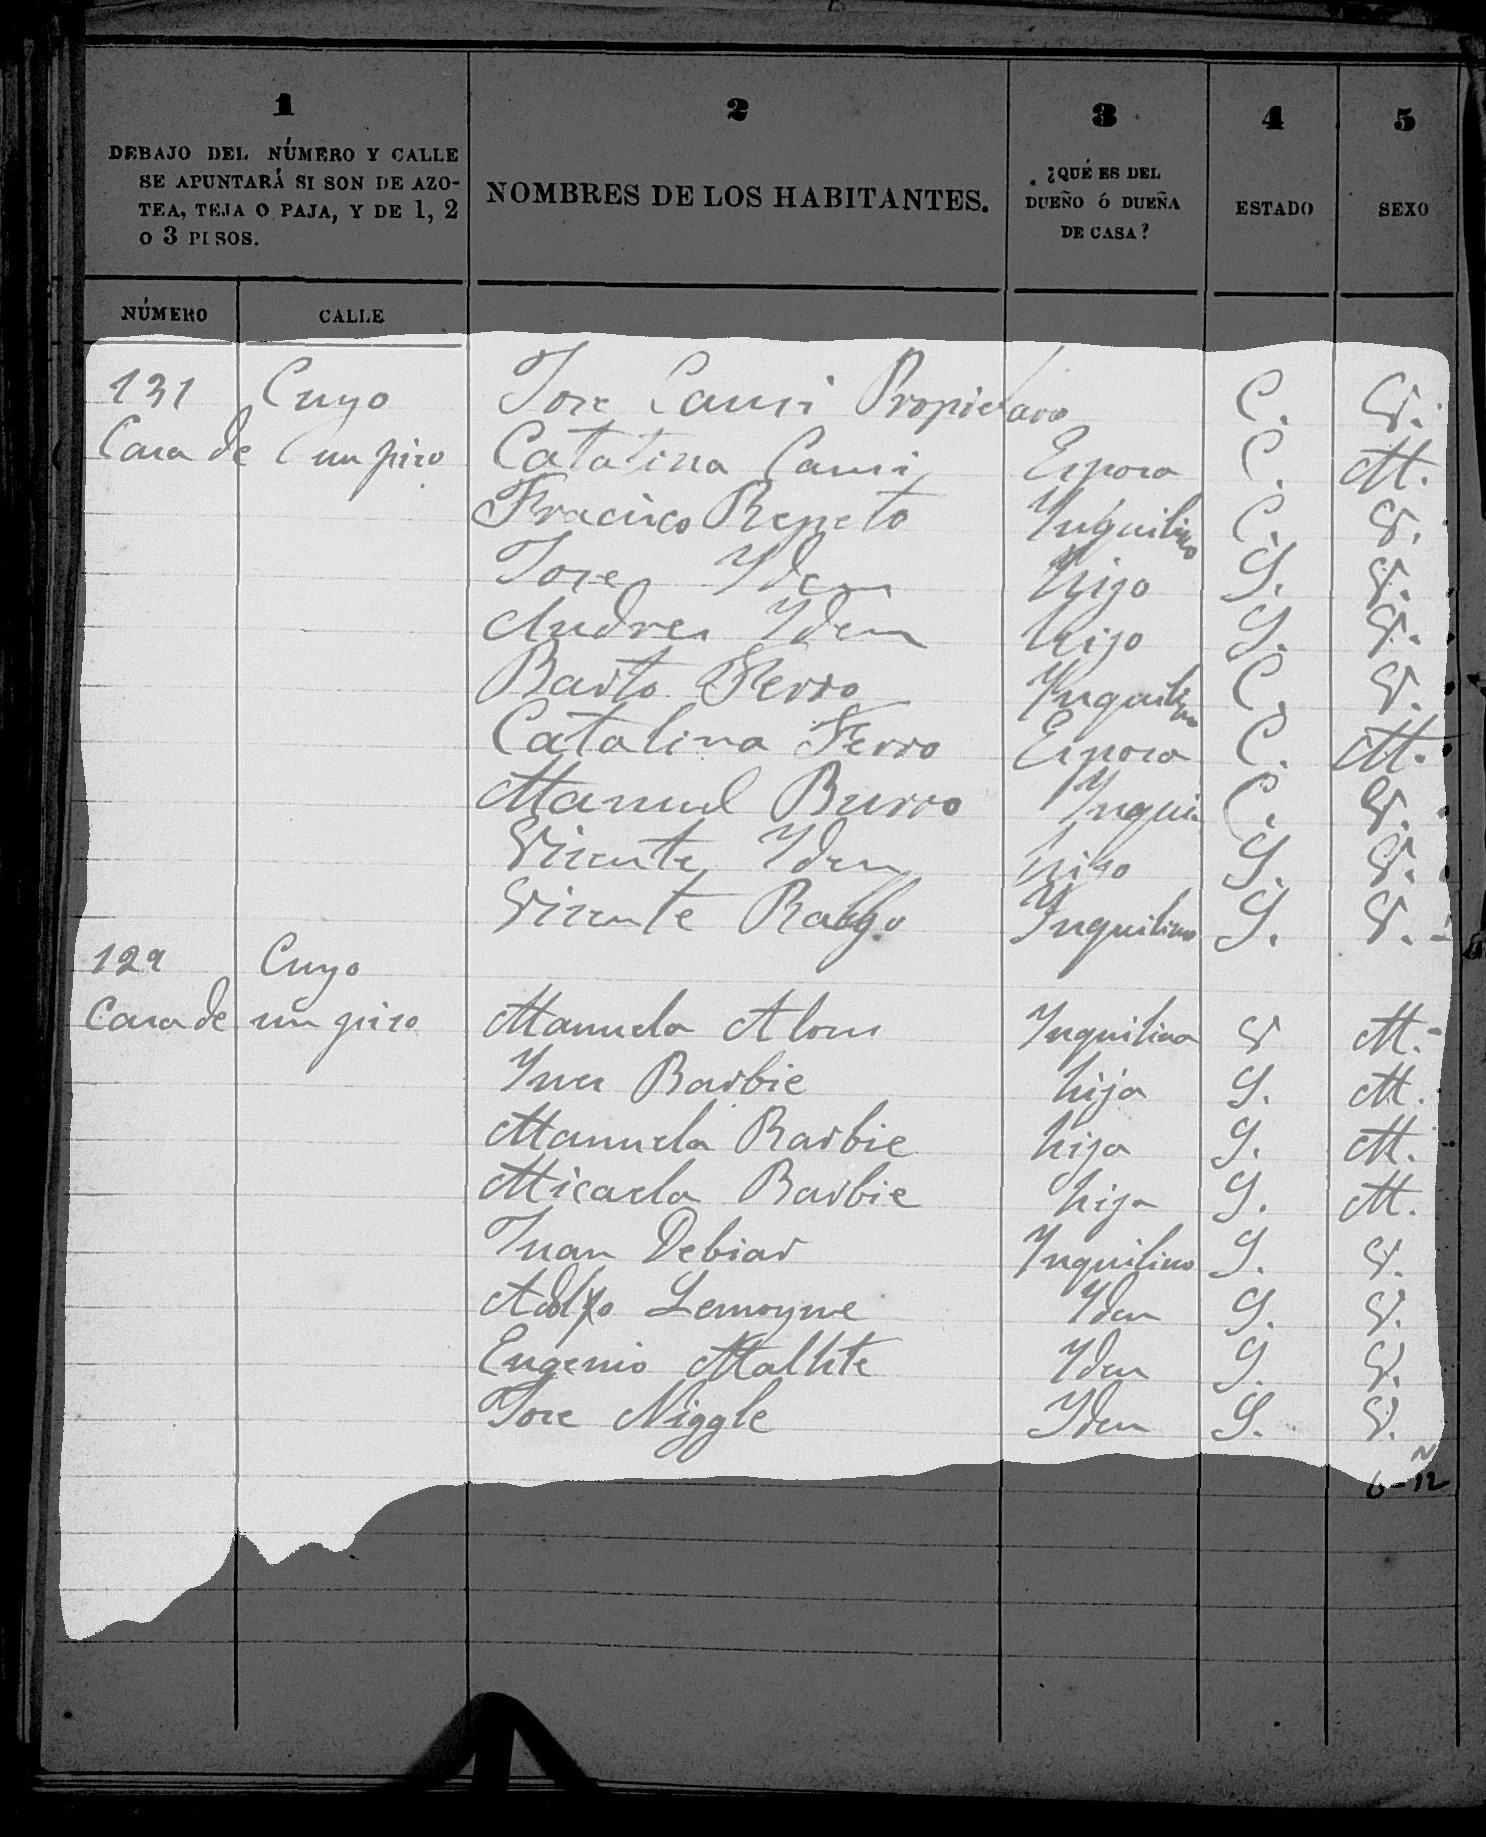 1 2 3 4 5
DEBAJO DEL NÚMERO Y CALLE
SE APUNTARÁ SI SON DE AZO-
TEA, TEJA O PAJA, Y DE 1, 2
O 3 PISOS.
NOMBRES DE LOS HABITANTES.
¿QUÉ ES DEL
DUEÑO Ó DUEÑA
DE CASA?
ESTADO
SEXO
NÚMERO CALLE
131 Cuyo Jose Propietario C. V.
Casa de un piso Catalina Esposa C. M.
Fracisco Repeto Ynquilino C. V.
Jose Ydem hijo S. V.
Andres Ydem hijo S. V.
Barto. Ferro Ynquilino C. V.
Catalina Ferro Esposa C. M.
Manuel Burro Ynqui C. V.
Vicente Ydem hijo S. V.
Vicente Ynquilino S. V.
129 Cuyo
Casa de un piso Manuela Ynquilina V M.
Ynes Barbie hija S. M.
Manuela Barbie hija S. M.
Micaela Barbie hija S. M.
Juan Debiar Ynquilino S. V.
Adolfo Lemoyne Ydem S. V.
Eugenio Ydem S. V.
Jose Niggle Ydem S. V.
6-12